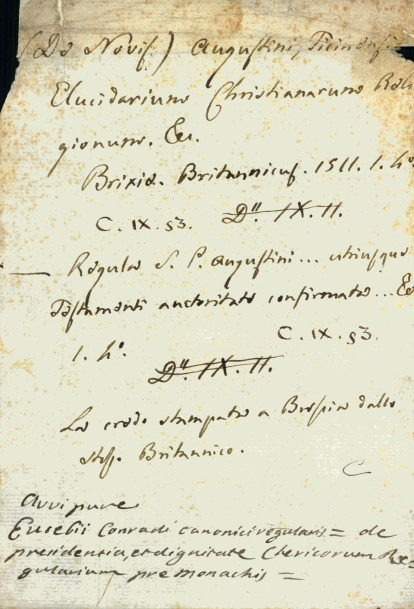 (De Novis.) Augustini, Ticinensis
Elucidarium Christianarum Reli
gionum. Ec.
Brixiæ. Britannicus. 1511. 1. 4°.
C. IX. 53. D". IX. 11.
— Regula S. P. Augustini... utriusque
Testamenti auctoritate confirmata... Ec
1. 4°. C. IX. 53.
D". IX. 11.
La credo stampata a Brescia dallo
stess. Britannico.
C
Avvi pure
Eusebii Conradi canonici regularis = de
presidentia et dignitate Clericorum Re=
gularium pre monachis =